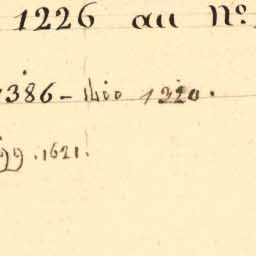 1226 au Nº.
1386 - 1320.
99. 1621.